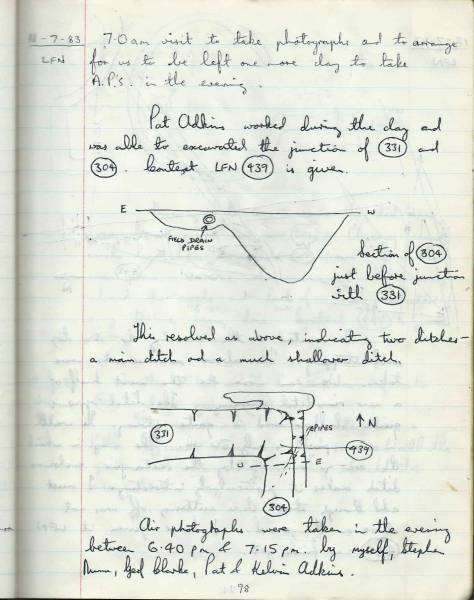 11-7-83 7.0am visit to take photographs and to arrange
LFN for us to be left one more day to take
A.P.S. in the evening.
Pat Adkins worked during the day and
was able to excavated the junction of 331 and
304. Context LFN 439 is given.
E W
FIELD DRAIN
PIPES
Section of 304
just before junction
with 331
This resolved as above, indicating two ditches -
a main ditch and a much shallower ditch.
↑ N
PIPES
331
439
W E
304
Air photographs were taken in the evening
between 6.40 pm & 7.15 pm. by myself, Stephen
Nunn, Ged Clarke, Pat & Kelvin Adkins.
98